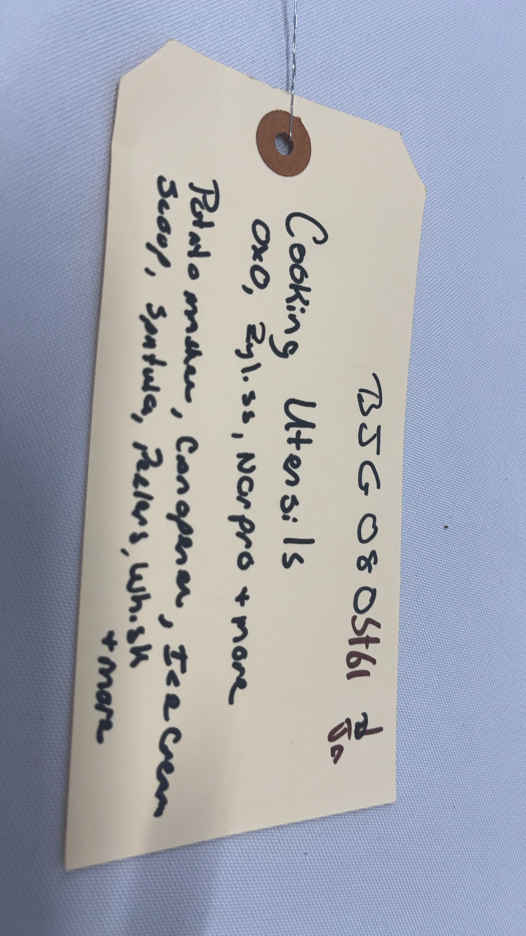 BJG080
Cooking Utensils
OXO, Zyliss, Norpro + more
Potato masher, Can opener, Ice cream
Scoop, Spatula, Peelers, Whisk
+ more